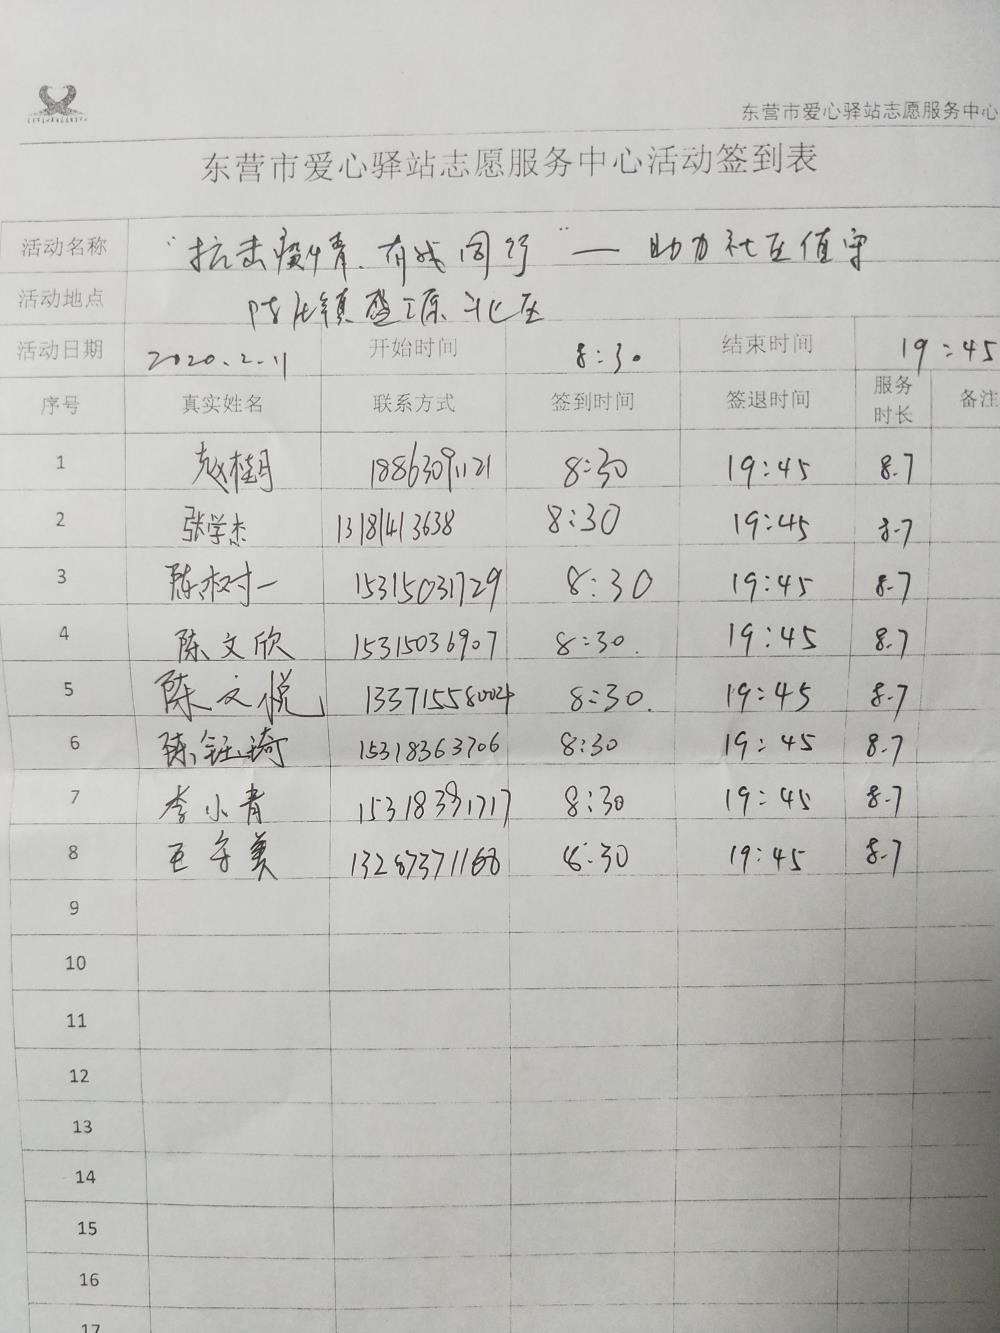 东营市爱心驿站志愿服务中心
东营市爱心驿站志愿服务中心活动签到表
活动名称 “抗击疫情.有我同行”— 助力社区值守
活动地点 镇盛源北区
活动日期 2020.2.11 开始时间 8:30 结束时间 19:45
序号 真实姓名 联系方式 签到时间 签退时间 服务时长 备注
1 赵桂月 18863091121 8:30 19:45 8.7
2 张学杰 13181413638 8:30 19:45 8.7
3 陈树一 15315031729 8:30 19:45 8.7
4 陈文欣 15315036907 8:30. 19:45 8.7
5 陈文悦 13371558004 8:30. 19:45 8.7
6 陈钰琦 15318363706 8:30 19:45 8.7
7 李小青 15318391717 8:30 19:45 8.7
8 王守美 13287371168 8:30 19:45 8.7
9
10
11
12
13
14
15
16
17